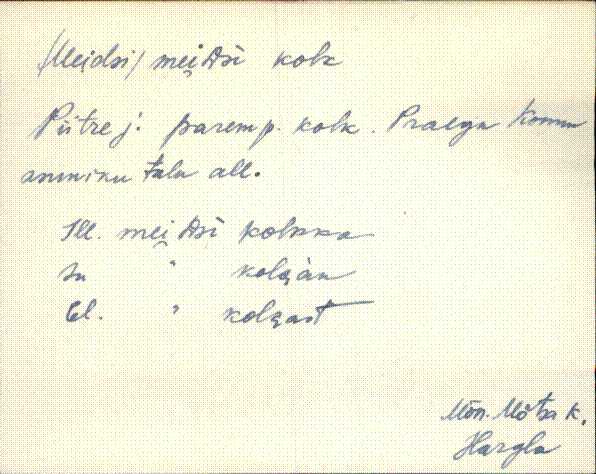 /Meidsi/ meiDsi kolk
Piitre j. paremp. kolk. Praegu
asuniku talu all.
Ill. meiDsi kolkka
In " kolgan
El. " kolgast
Mõn. Mõtsa k.
Hargla